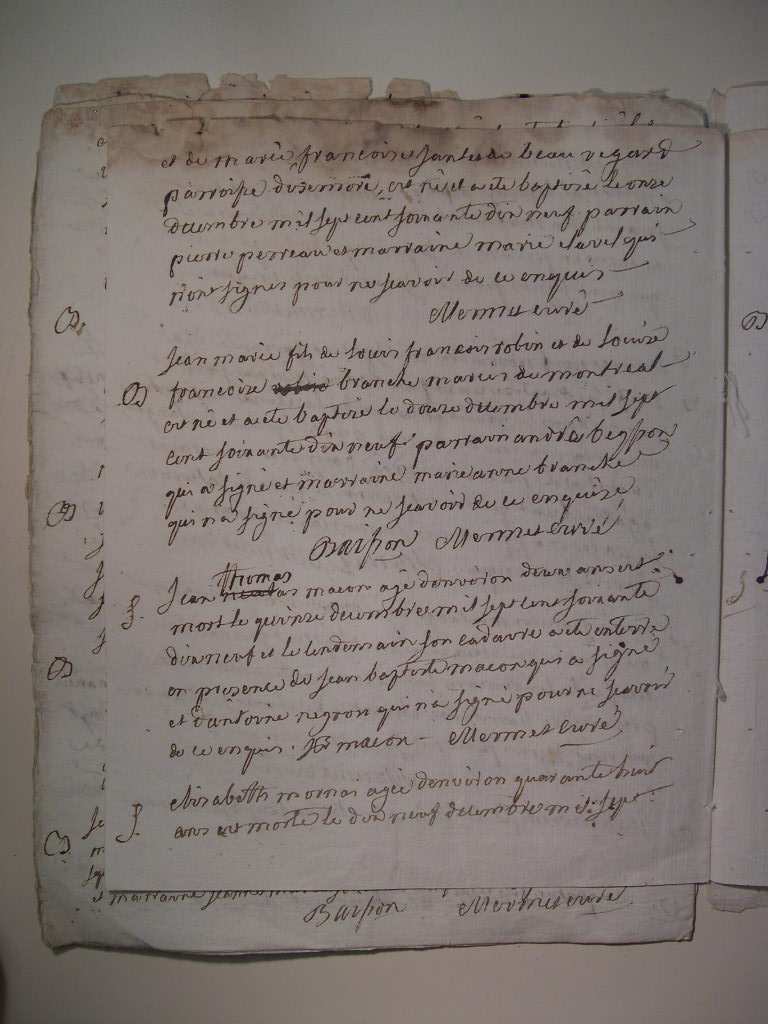 et de marie francoise santes de beau regard
parroisse est né et a ete baptisé le onze
decembre mil sept cent soixante dix neuf parrain
pierre perreau et marraine marie clavel qui
n'ont signés pour ne scavoir de ce enquis
Mermet curé
B
jean marie fils de louis francois robin et de louise
francoise branche mariés de montreal
est né et a ete baptisé le douze decembre mil sept
cent soixante dix neuf parrain andré
qui a signé et marraine marie anne branche
qui n'a signé pour ne scavoir de ce enquise
Mermet curé
thomas
S. jean macon agé d'environ deux ans est
mort le quinze decembre mil sept cent soixante
dix neuf et le lendemain son cadavre a ete enterré
en presence de jean baptiste macon qui a signé
et d'antoine negron qui n'a signé pour ne scavoir
de ce enquis. macon Mermet curé
S. elisabeth mornai agée d'environ quarante huit
ans est morte le dix neuf decembre mil sept
et marraine jeanne
Mermet curé